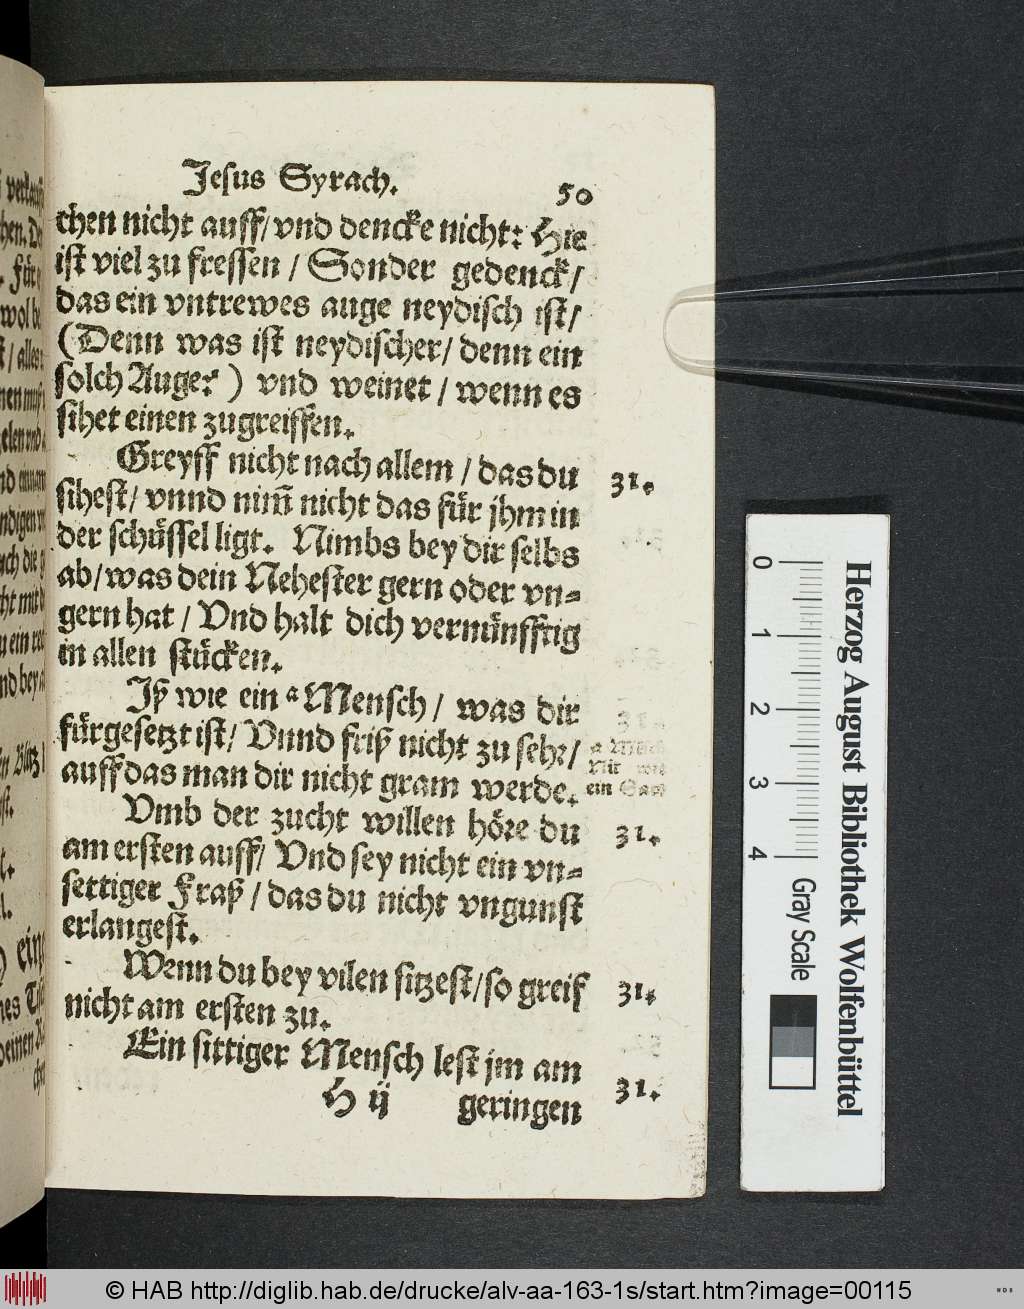 Jesus Syrach.
50
chen nicht auff/ vnd dencke nicht: Hie
ist viel zu fressen / Sonder gedenck/
das ein vntrewes auge neydisch ist/
(Denn was ist neydischer/ denn ein
solch Auge? ) vnd weinet / wenn es
sihet einen zugreiffen.
Greyff nicht nach allem / das du
31.
sihest/ vnnd nim̄ nicht das für jhm in
der schüssel ligt. Nimbs bey dir selbs
ab/ was dein Nehester gern oder vn-
gern hat / Vnd halt dich vernünfftig
in allen stücken.
Iß wie ein a Mensch / was dir
fürgesetzt ist/ Vnnd friß nicht zu sehr/
a Mensch
auff das man dir nicht gram werde.
Nit wie
ein Saw
Vmb der zucht willen höre du
31.
am ersten auff/ Vnd sey nicht ein vn-
settiger Fraß / das du nicht vngunst
erlangest.
Wenn du bey vilen sitzest/ so greif
31.
nicht am ersten zu.
Ein sittiger Mensch lest jm am
31.
H ij
geringen
0 1 2 3 4
Gray Scale
Herzog August Bibliothek Wolfenbüttel
© HAB http://diglib.hab.de/drucke/alv-aa-163-1s/start.htm?image=00115